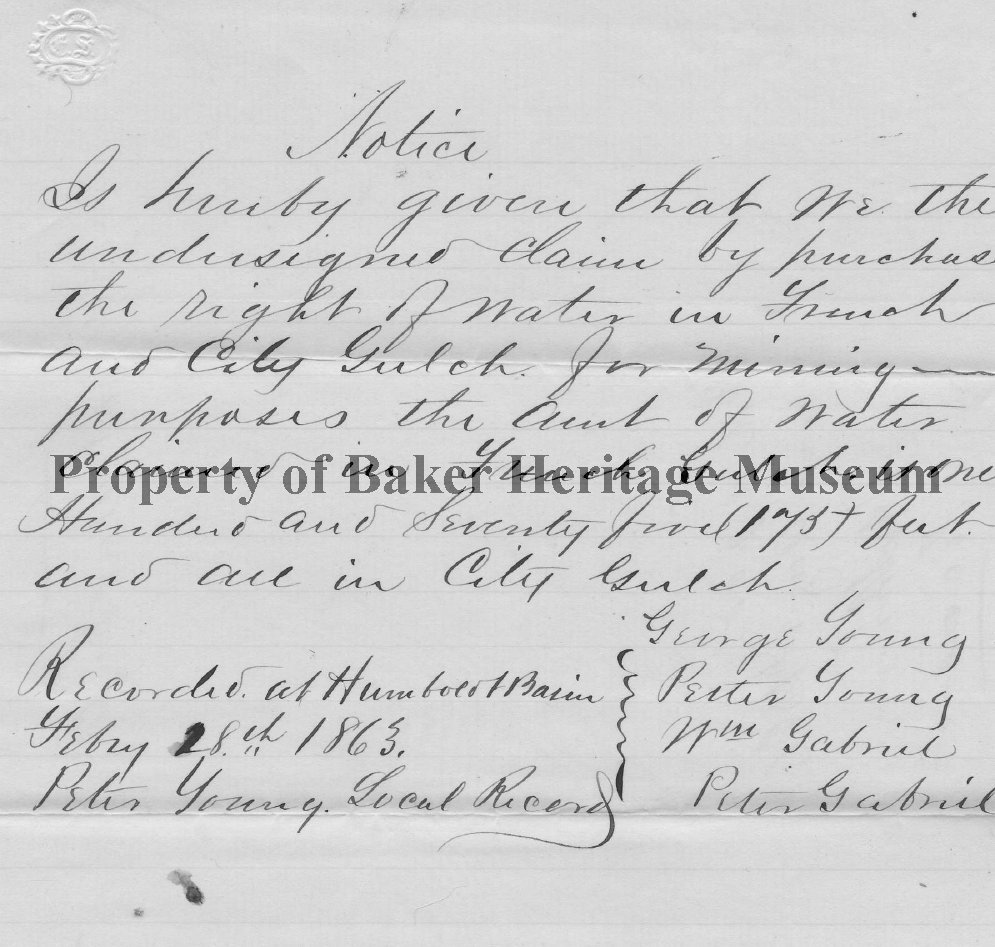 C.S.
Notice
Is hereby given that We the
undersigned claim by purchas
the right of Water in French
and City Gulch. for Mining
purposes the amt of Water
claimed in French Gulch is One
Property of Baker Heritage Museum
Hundred and Seventy five (175) feet.
and all in City Gulch.
George Young
Recorded. at Humboldt Basin
Peter Young
Feby 28.th 1863.
Wm Gabriel
Peter Young. Local Record
Peter Gabriel